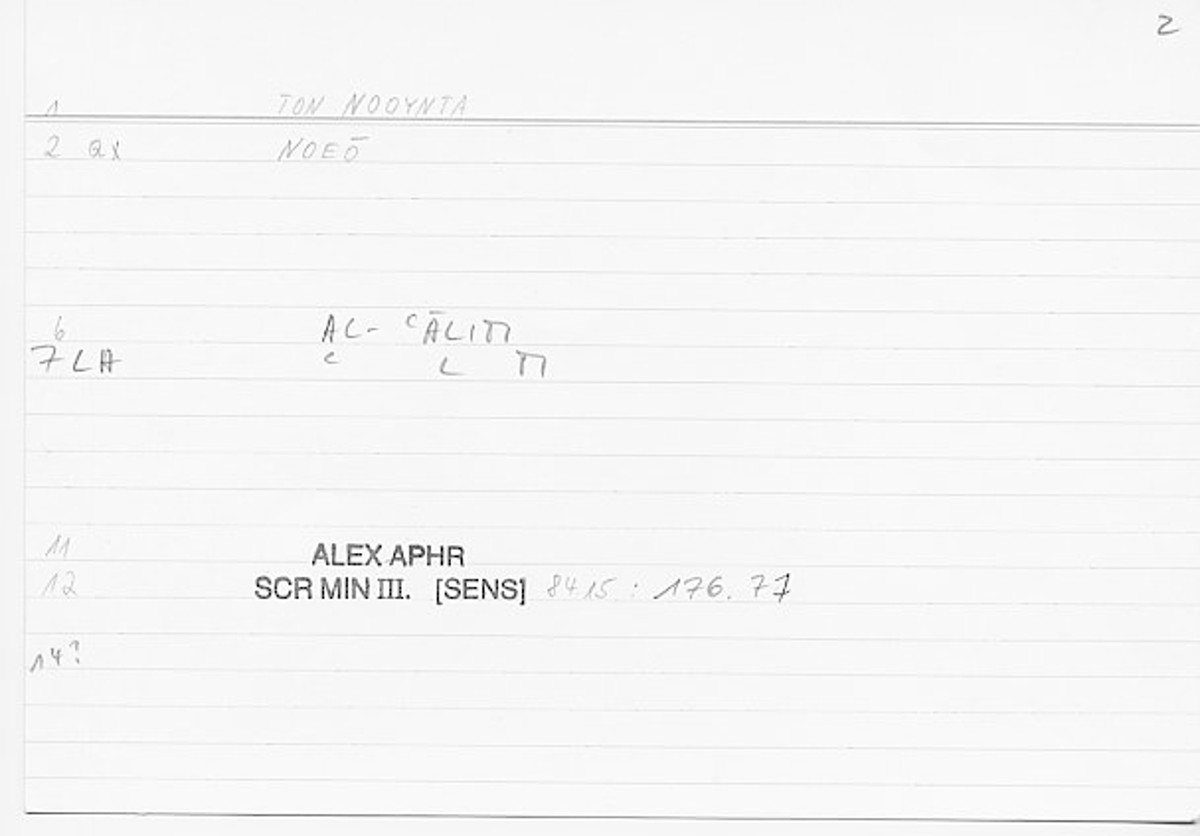 2
1 TON NOOYNTA
2 ax NOEŌ
6 AL- ᶜĀLIM
7 LA C L M
11 ALEX APHR
12 SCR MIN III. [SENS] 84.15 : 176.77
14?